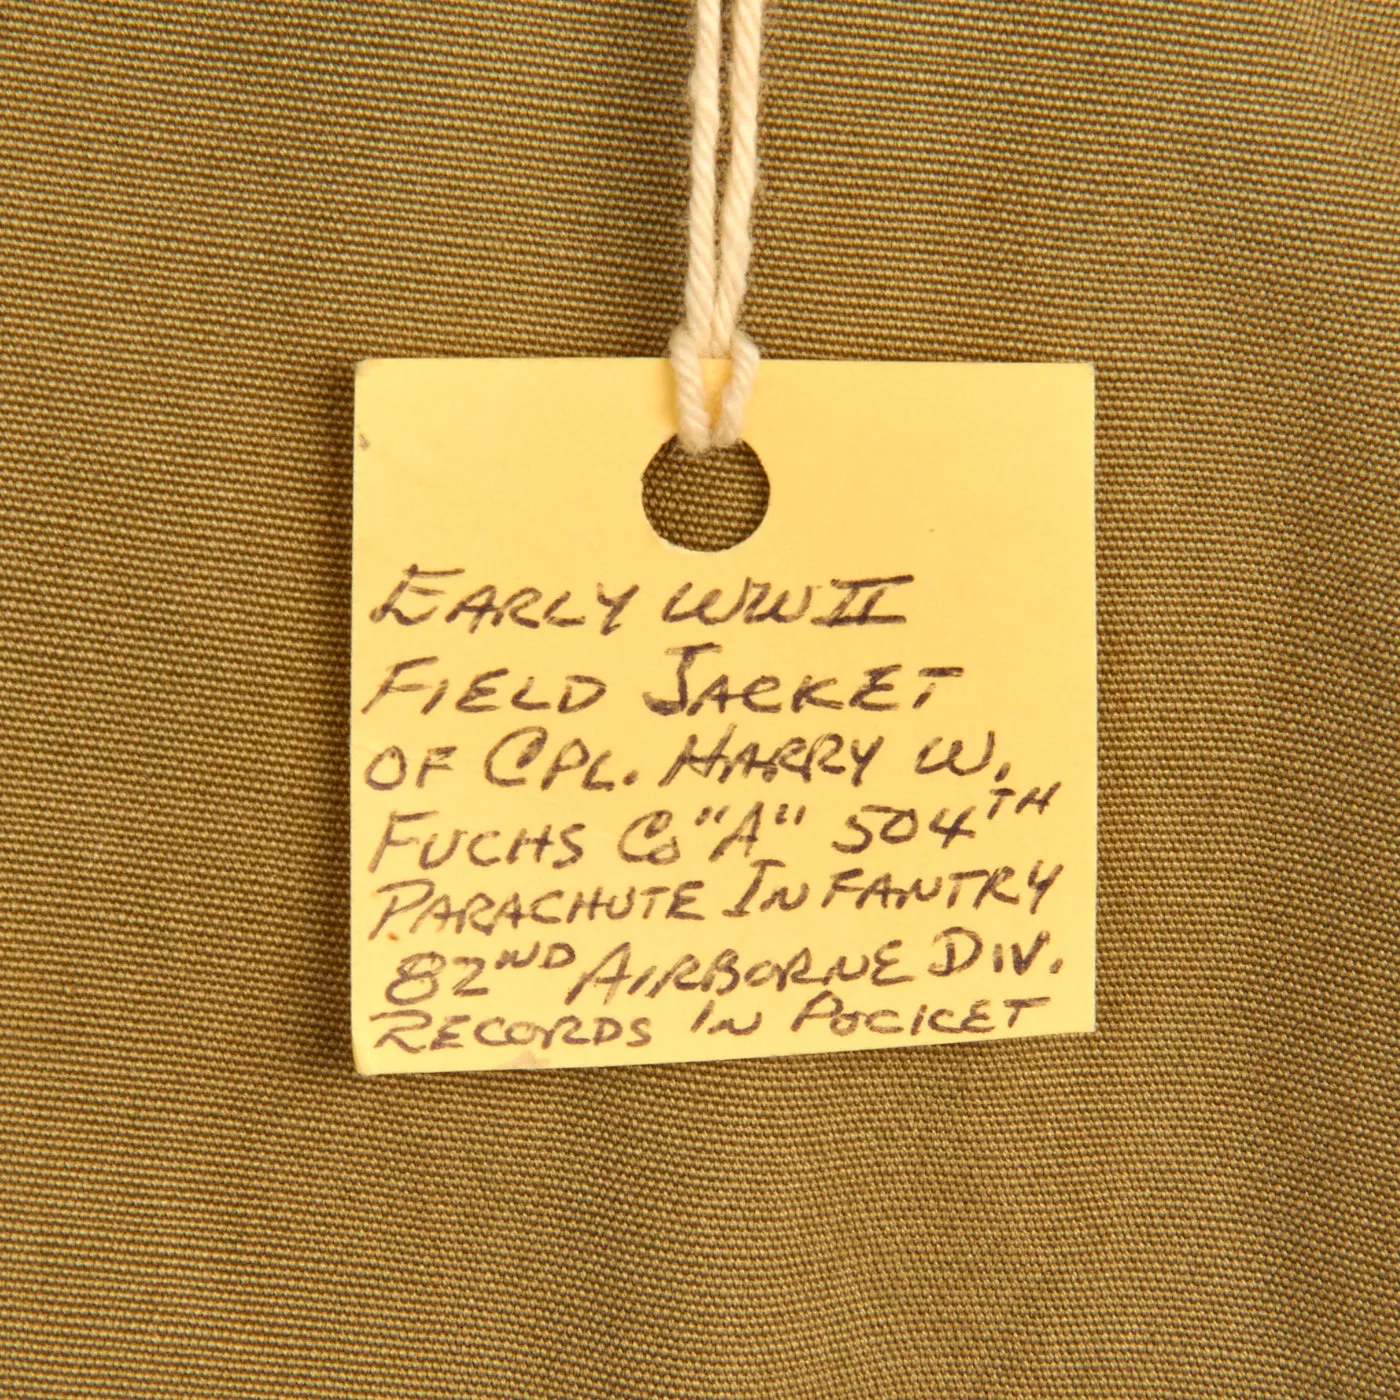 EARLY WWII
FIELD JACKET
OF CPL. HARRY W.
FUCHS Co "A" 504TH
PARACHUTE INFANTRY
82ND AIRBORNE DIV.
RECORDS IN POCKET